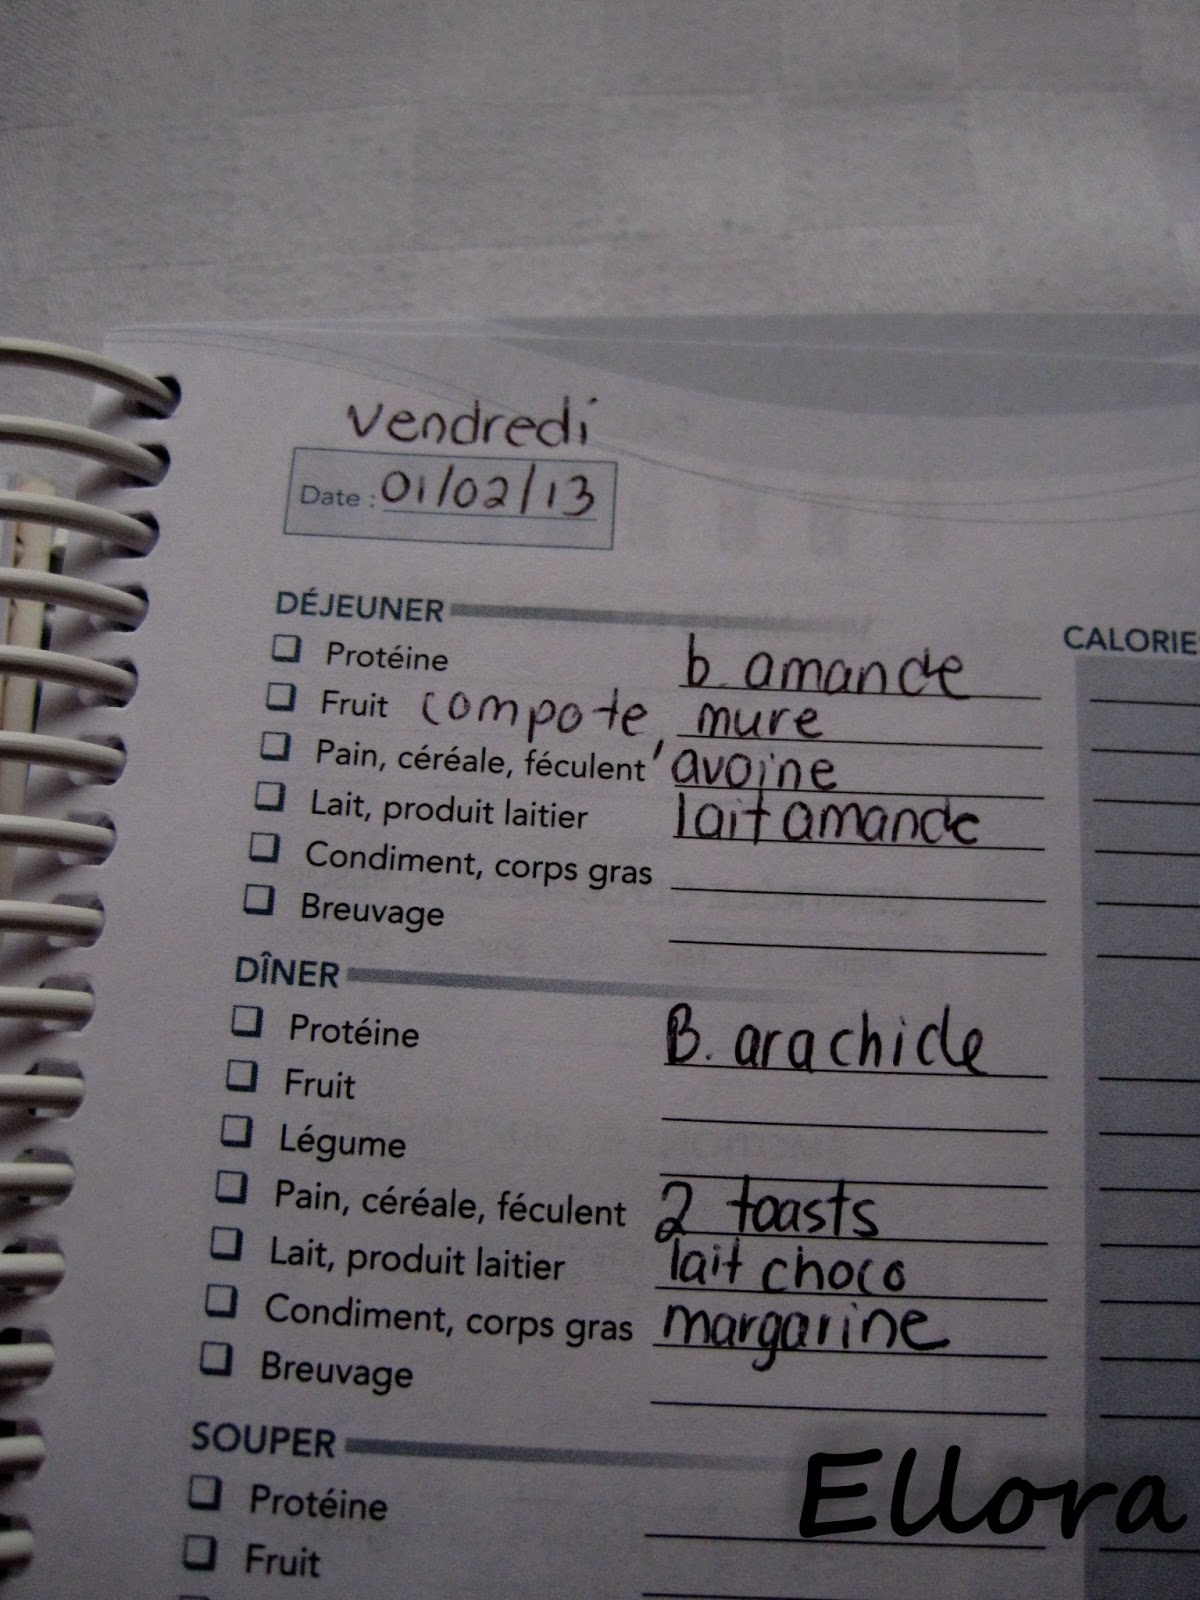 vendredi
Date : 01/02/13
DÉJEUNER
CALORIE
Protéine b. amande
Fruit compote, mure
Pain, céréale, féculent avoine
Lait, produit laitier lait amande
Condiment, corps gras
Breuvage
DÎNER
Protéine B. arachide
Fruit
Légume
Pain, céréale, féculent 2 toasts
Lait, produit laitier lait choco
Condiment, corps gras margarine
Breuvage
SOUPER
Protéine
Fruit
Ellora